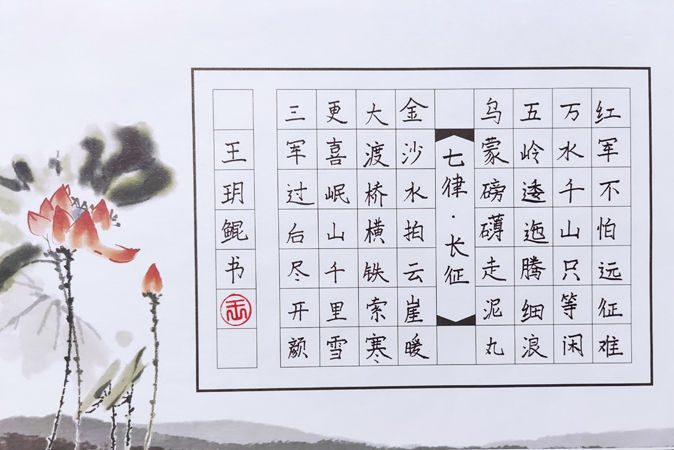 红军不怕远征难
万水千山只等闲
五岭逶迤腾细浪
乌蒙磅礴走泥丸
七律·长征
金沙水拍云崖暖
大渡桥横铁索寒
更喜岷山千里雪
三军过后尽开颜
王玥鲲书